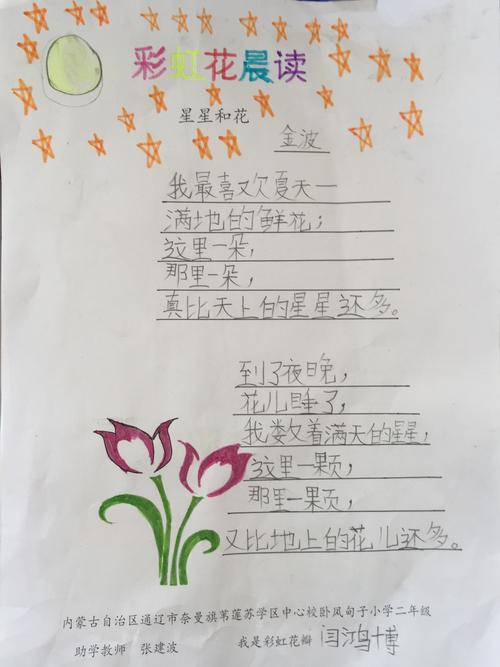 彩虹花晨读
星星和花
金波
我最喜欢夏天—
满地的鲜花；
这里一朵，
那里一朵，
真比天上的星星还多。
到了夜晚，
花儿睡了，
我数着满天的星星，
这里一颗，
那里一颗，
又比地上的花儿还多。
内蒙古自治区通辽市奈曼旗苇莲苏学区中心校卧凤甸子小学二年级
助学教师 张建波 我是彩虹花瓣 闫鸿博